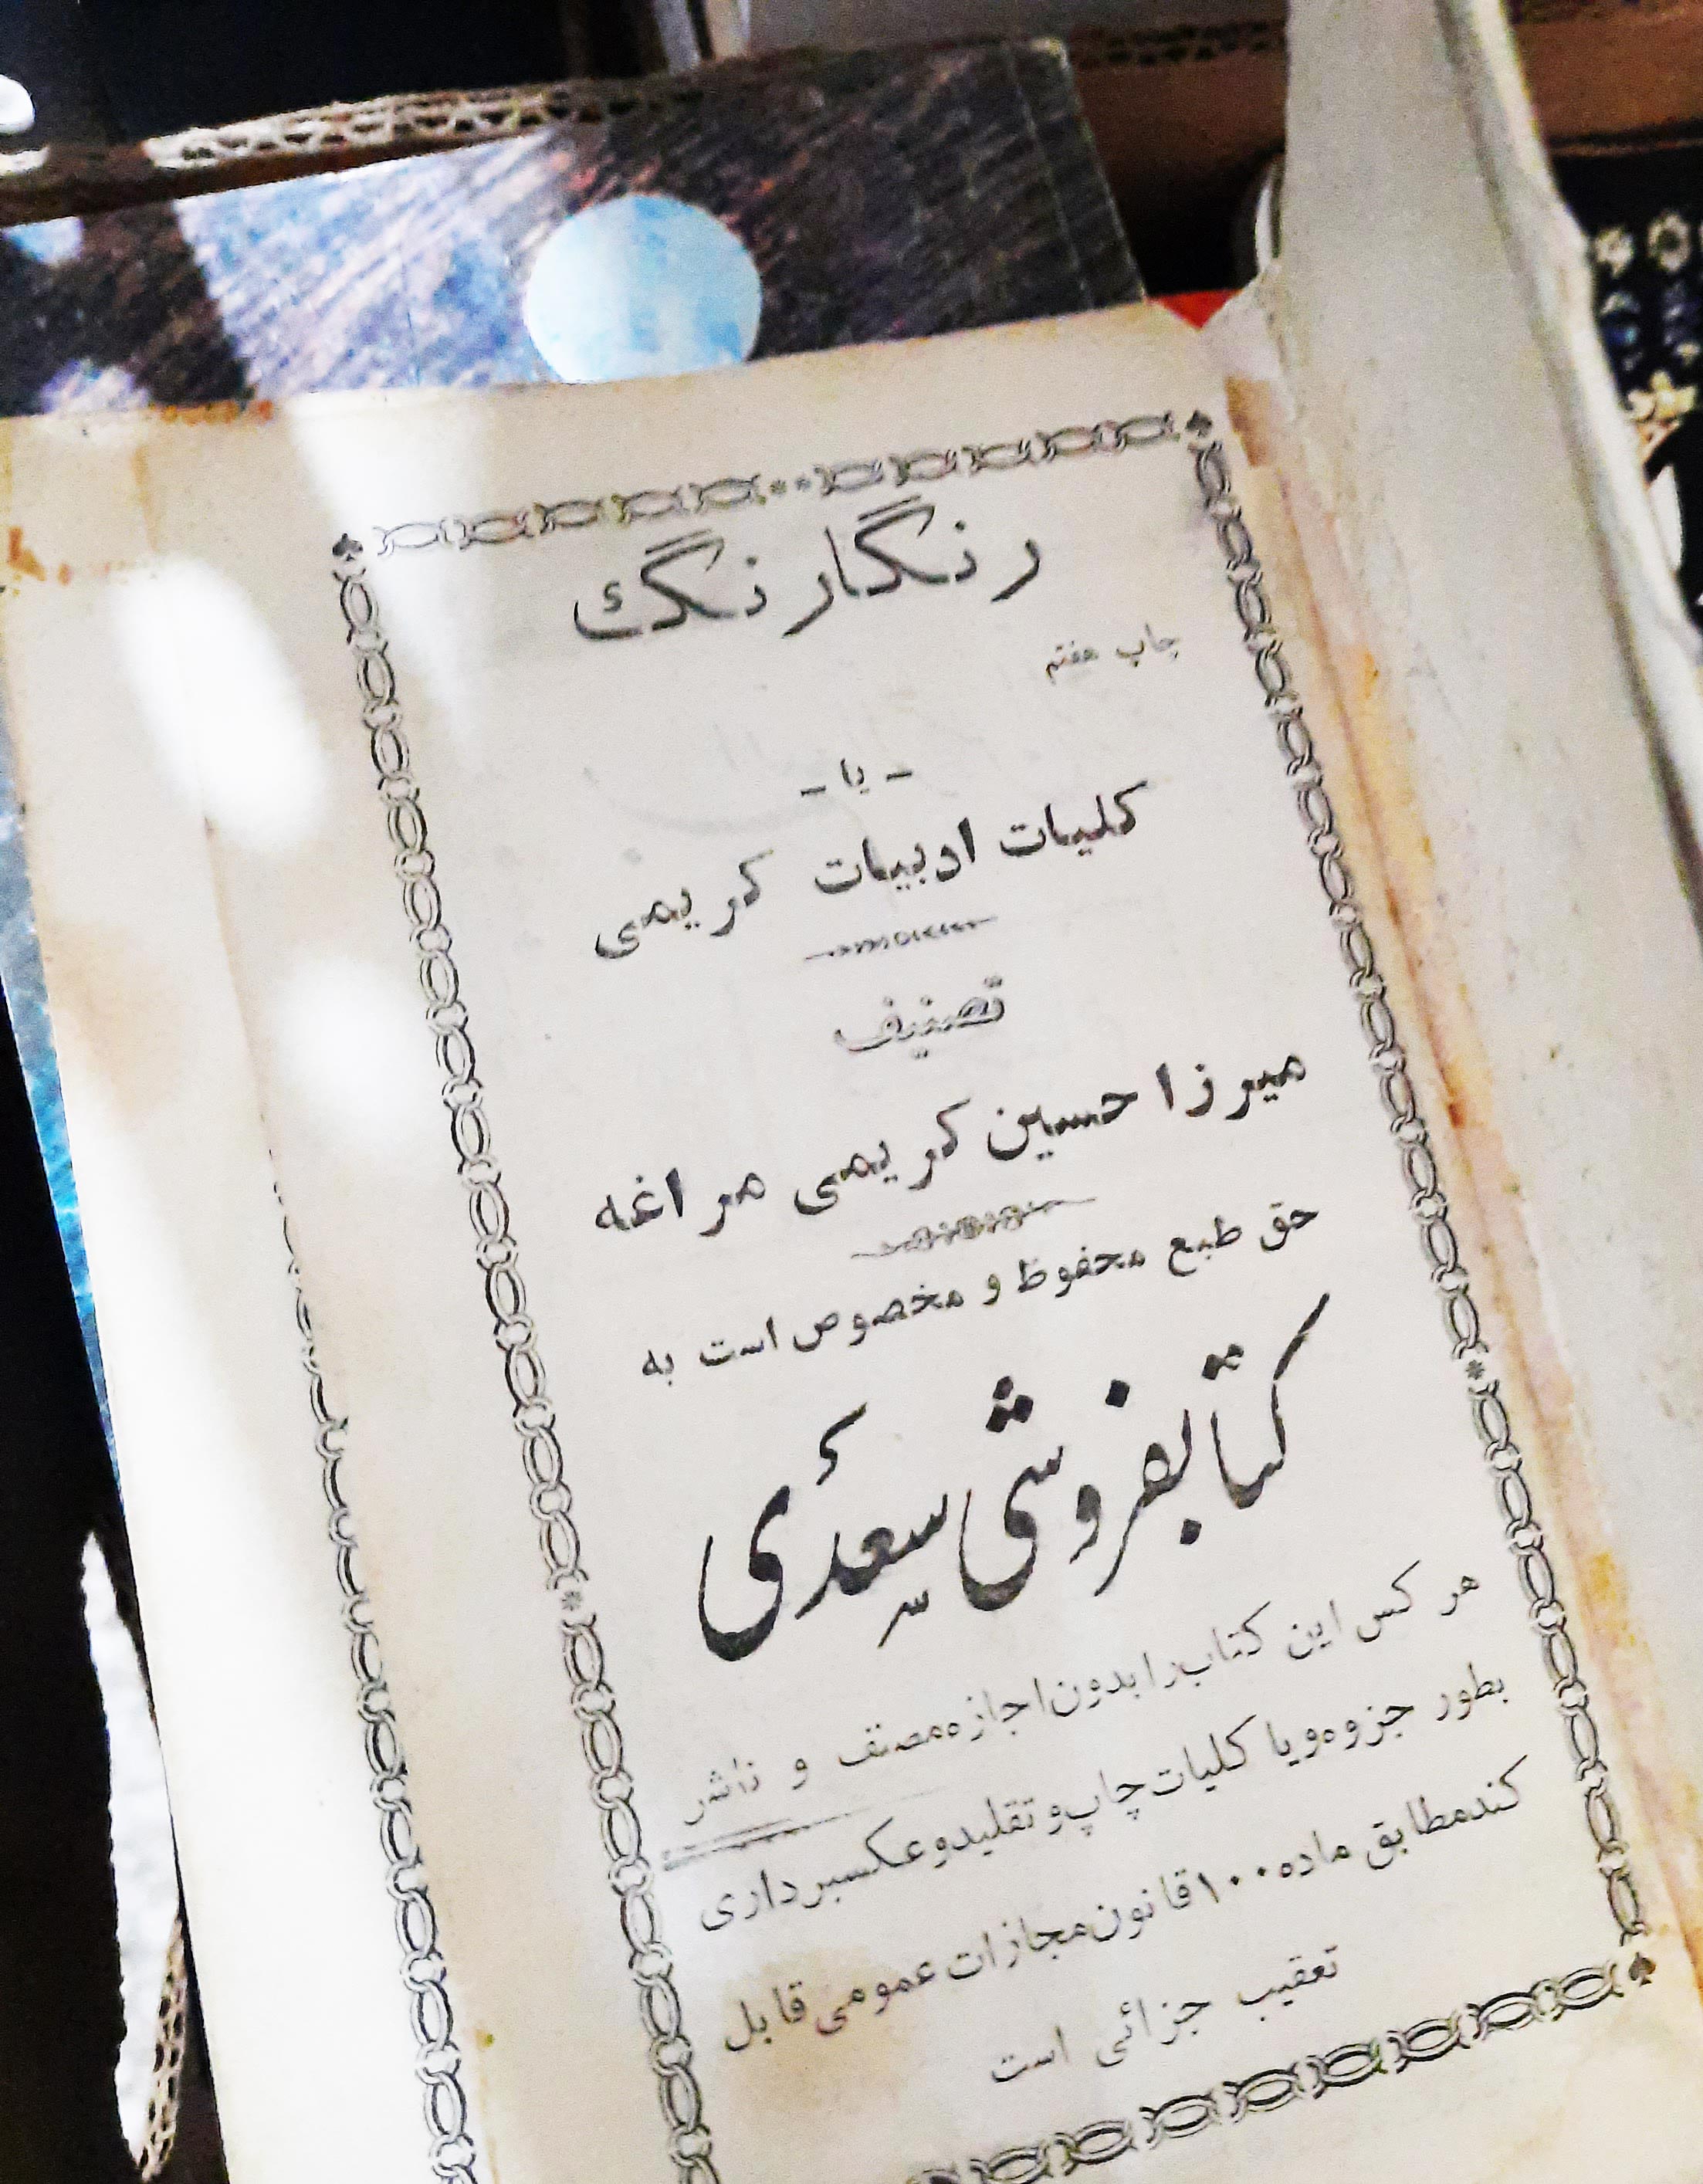 رنگارنگ
چاپ هفتم
- یا -
کلیات ادبیات کریمی
تصنیف
میرزا حسین کریمی مراغه
حق طبع محفوظ و مخصوص است به
کتابفروشی سعدی
هر کس این کتاب را بدون اجازه مصنف و ناشر
بطور جزوه و یا کلیات چاپ و تقلید و عکسبرداری
کند مطابق ماده ۱۰۰ قانون مجازات عمومی قابل
تعقیب جزائی است